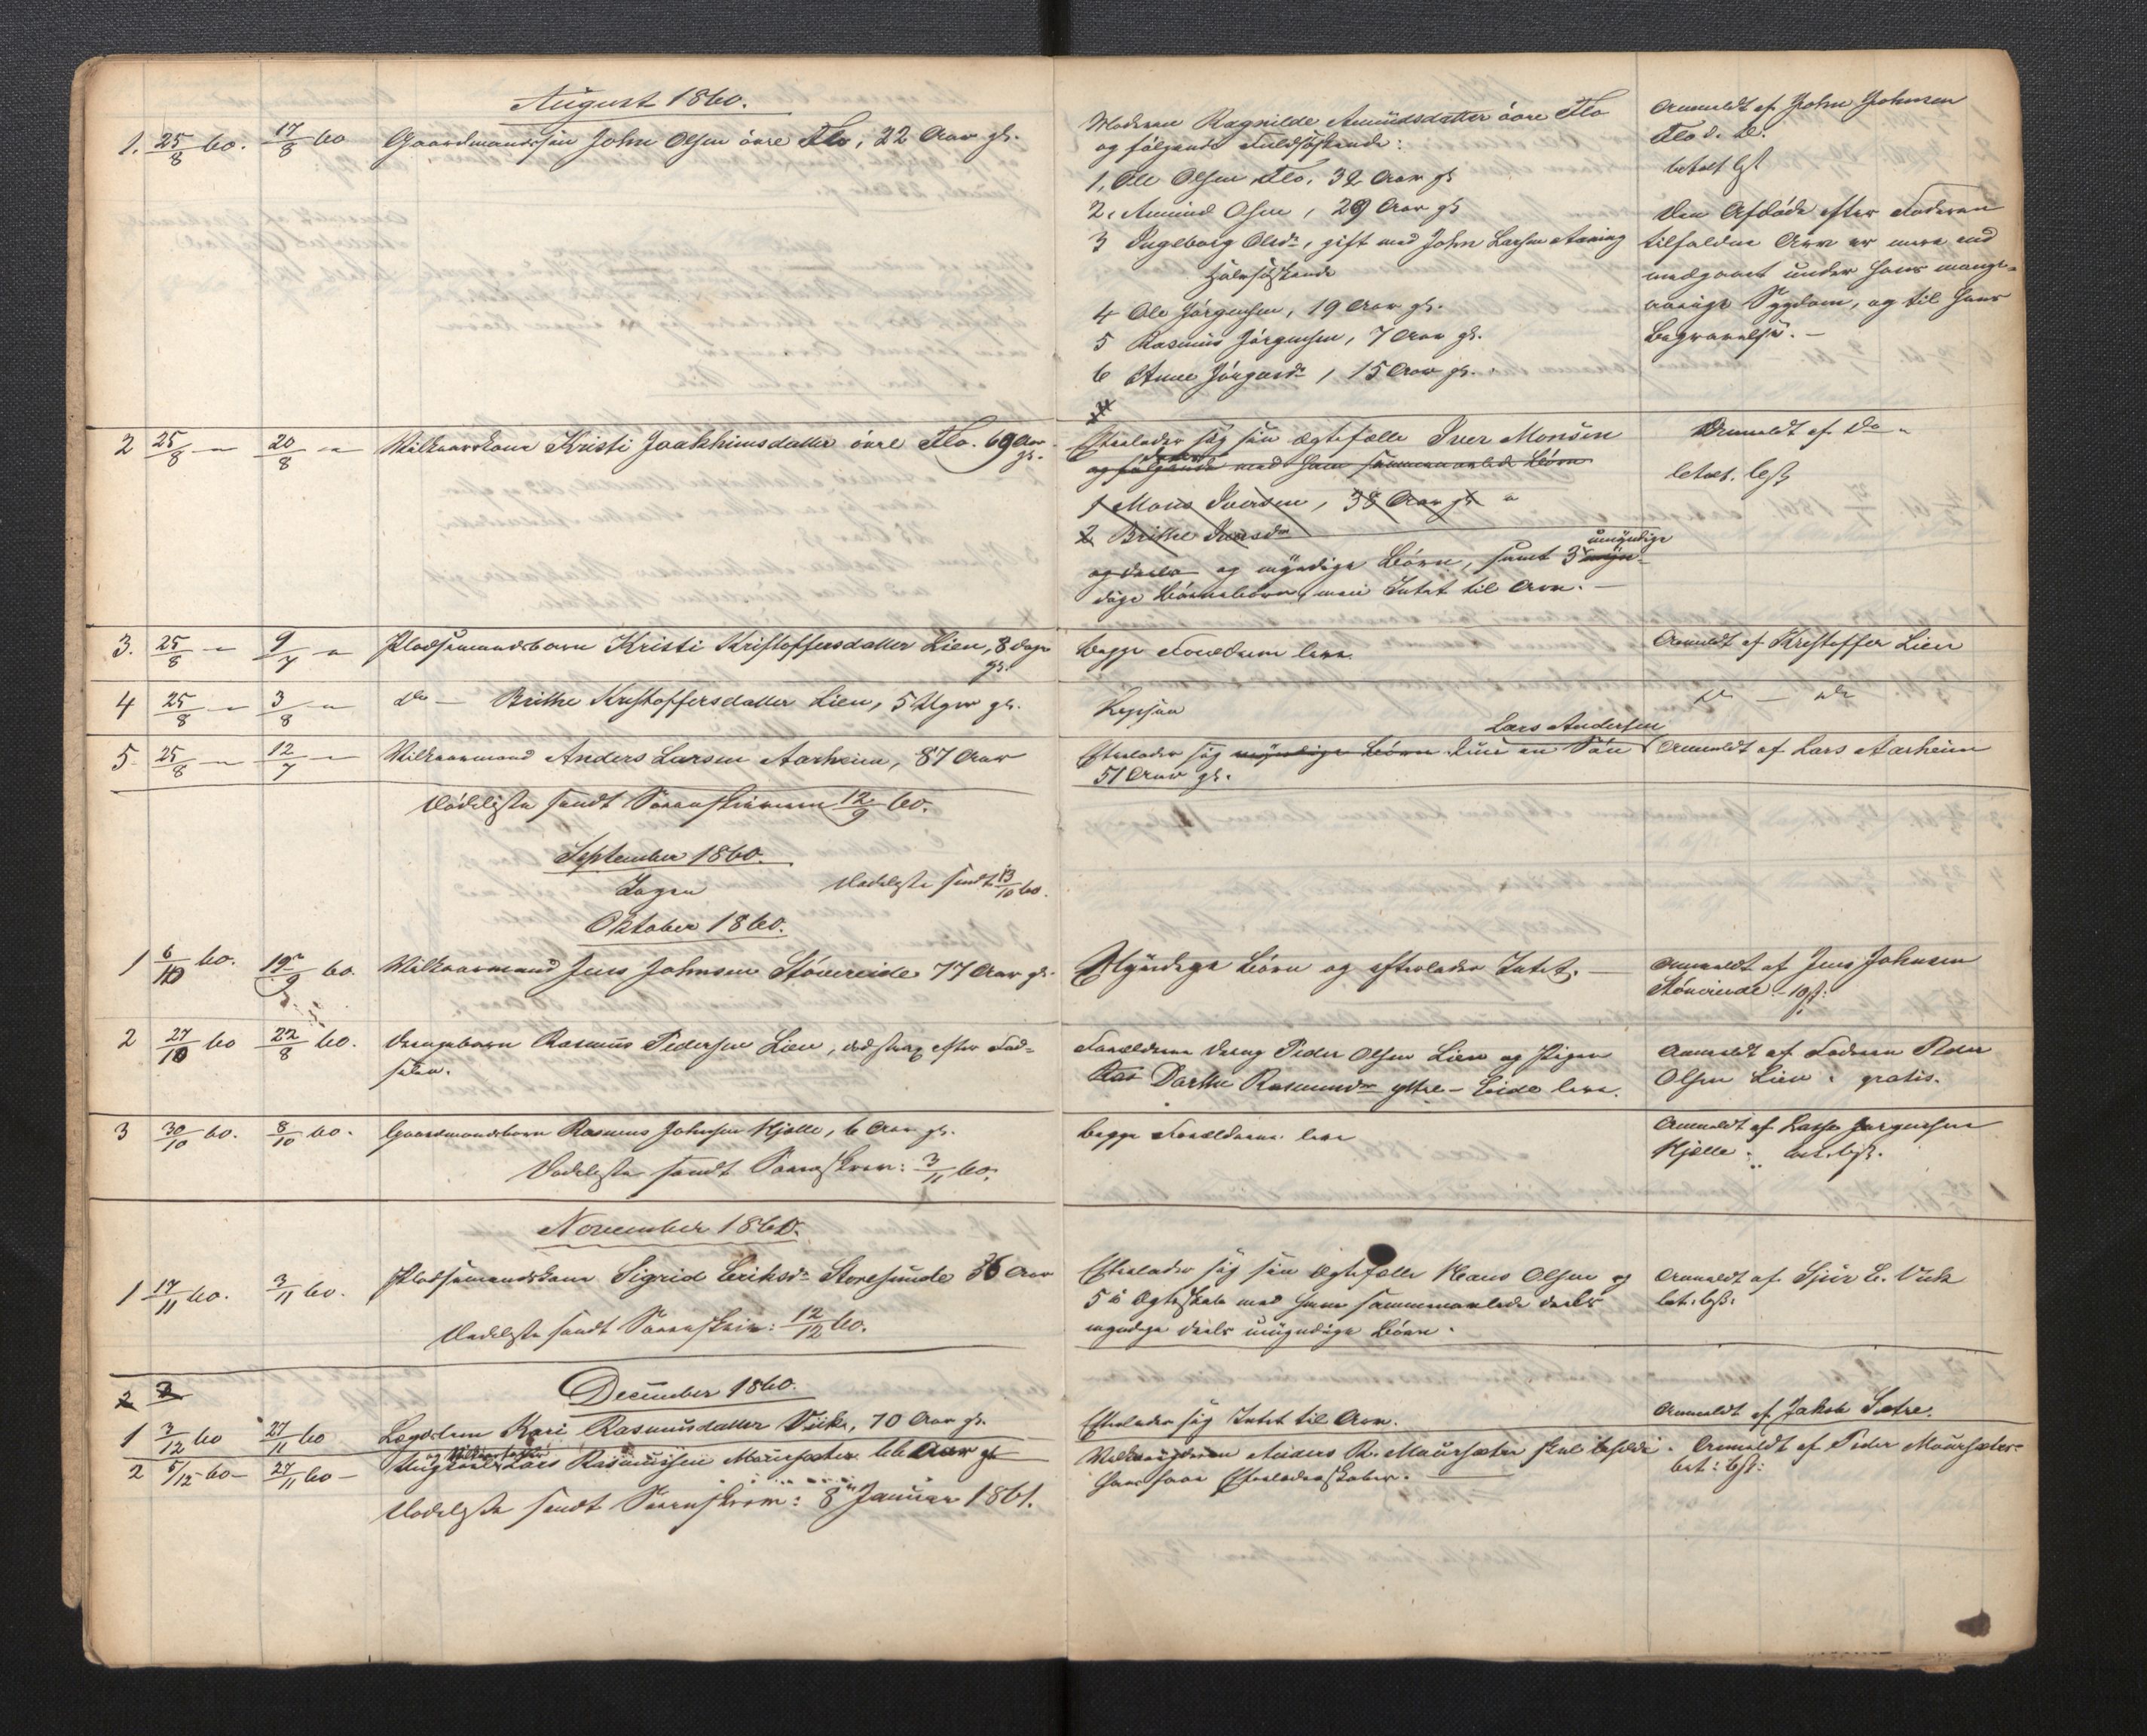 August 1860.
1. 25/8 60. 17/8 60 Gaardmandssøn John Olsen övre Flo, 22 Aar gl.
Moderen Ragnilde Amundsdatter övre Flo
og følgende Fuldsøskende:
1, Ole Olsen Flo, 32 Aar gl
2, Amund Olsen, 29 Aar gl
3 Ingeborg Olsdr, gift med John Larsen
Halvsøskende
4 Ole Jörgensen, 19 Aar gl.
5 Rasmus Jörgensen, 7 Aar gl.
6 Anne Jörgensdr, 15 Aar gl.
Anmeldt af John Johnsen
Flo d. æ.
betalt 6ß
Den Afdöde efter Faderen
tilfaldne Arv er mere end
medgaaet under hans mange-
aarige Sygdom, og til hans
Begravelse. –
2 25/8 – 20/8 – Vilkaarskone Kristi Joakhimsdatter övre Flo. 69 Aar
gl.
Efterlader sig sin Ægtefælle Iver Monsen
og følgende med ham sammenavlede Börn
1 Mons Iversen, 38 Aar gl
2 Brithe Iversdr
umyndige
og deels og myndige Börn, samt 3 myn-
dige Börnebörn, men Intet til Arv. –
Anmeldt af Do
betalt. 6ß
3. 25/8 – 9/7 – Pladsemandsbarn Kristi Kristoffersdatter Lien, 8 Dage
gl.
Begge Forældrene leve.
Anmeldt af Kristoffer Lien
4 25/8 – 3/8 – do – Brithe Kristoffersdatter Lien, 5 Uger gl.
do – do
5. 25/8 – 12/7 – Vilkaarmand Anders Larsen Aarheim, 87 Aar
Lars Andersen
Efterlader sig myndige Börn kun en Sön
51 Aar gl.
Anmeldt af Lars Aarheim
Dödsliste sendt Sorenskriveren 12/9 60.
September 1860.
Ingen Dødsliste sendt 13/10 60.
Oktober 1860.
1 6/10 60. 19/9 60. Vilkaarmand Jens Johnsen Störeeide 77 Aar gl.
Myndige Börn og efterlader Intet. –
Anmeldt af Jens Johnsen
– 10ß.
2 27/10 60 22/8 60. Drengebarn Rasmus Pedersen Lien, död strax efter Fød-
selen.
Forældrene Dreng Peder Olsen Lien og Pigen
Ras Darthe Rasmusdr ytre-Eide leve.
Anmeldt af Faderen Peder
Olsen Lien. gratis.
3 30/10 60. 8/10 60. Gaardmandsbarn Rasmus Johnsen Hjelle, 6 Aar gl.
Begge Forældrene leve
Anmeldt af Lasse Jørgensen
Hjelle. bet. 6ß.
Dødsliste sendt Sorenskriver: 3/11 60.
November 1860.
1 17/11 60. 3/11 60. Pladsemandskone Sigrid Eriksdr Storesunde 36 Aar
Efterlader sig sin Ægtefælle Klaus Olsen og
5 i Ægteskab med ham sammenavlede deels
myndige deels umyndige Börn.
Anmeldt af Sjur E. Viik
bet. 6ß.
Dødsliste sendt Sorenskriv: 12/12 60.
2 2
December 1860.
1 3/12 60 27/11 60 Lægdslem Kari Rasmusdatter Viik, 70 Aar gl.
Efterlader sig Intet til Arv.
Anmeldt af Jakob Sætre.
2 5/12 60 – 27/11 60 – Ungkarl Lars Rasmussen Maursæter 66 Aar gl
Anders R. Maursæter skal besidde
hans Efterladenskaber. –
Anmeldt af Peder Maursæter
bet: 6ß:
Dødsliste sendt Sorenskriver: 8de Januar 1861.